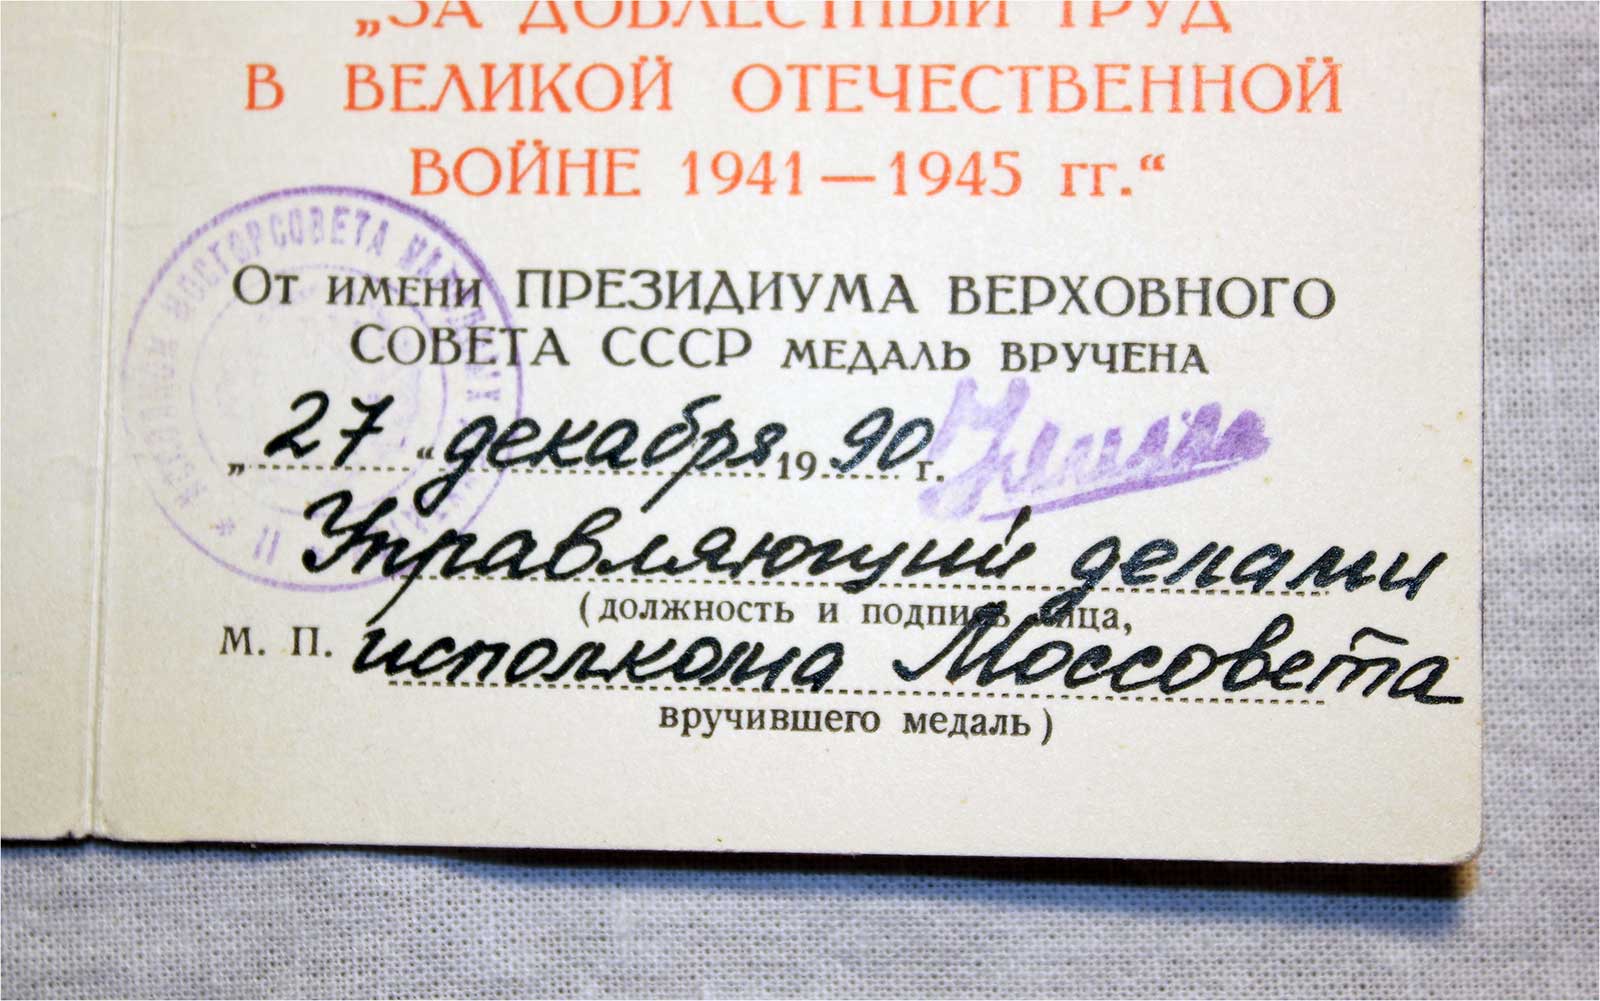 „ЗА ДОБЛЕСТНЫЙ ТРУД
В ВЕЛИКОЙ ОТЕЧЕСТВЕННОЙ
ВОЙНЕ 1941—1945 гг.“
ОТ ИМЕНИ ПРЕЗИДИУМА ВЕРХОВНОГО
СОВЕТА СССР МЕДАЛЬ ВРУЧЕНА
„27“ декабря 1990 г.
Управляющий делами
(должность и подпись лица,
М. П. исполкома Моссовета
вручившего медаль)
МОСГОРСОВЕТА